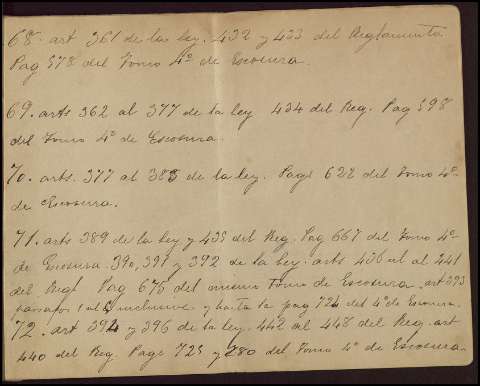 68. art 361 de la ley. 432 y 433 del Reglamento
Pag 578 del Tomo 4º de Escosura.
69. arts 362 al 377 de la ley 434 del Reg. Pag 598
del Tomo 4º de Escosura.
70. arts. 377 al 385 de la ley. Page 622 del Tomo 4º
de Escosura.
71. arts 389 de la ley y 435 del Reg. Pag 667 del Tomo 4º
de Escosura 390, 391 y 392 de la ley. arts 436 al al 441
del Regl Pag 675 del mismo tomo de Escosura, art 393
parrafos 1 al 4 inclusive y hasta la pag 724 del 4º de Escosura.
72. art 394 y 396 de la ley. 442 al 448 del Reg. art
440 del Reg Page 725 y 780 del Tomo 4º de Escosura.